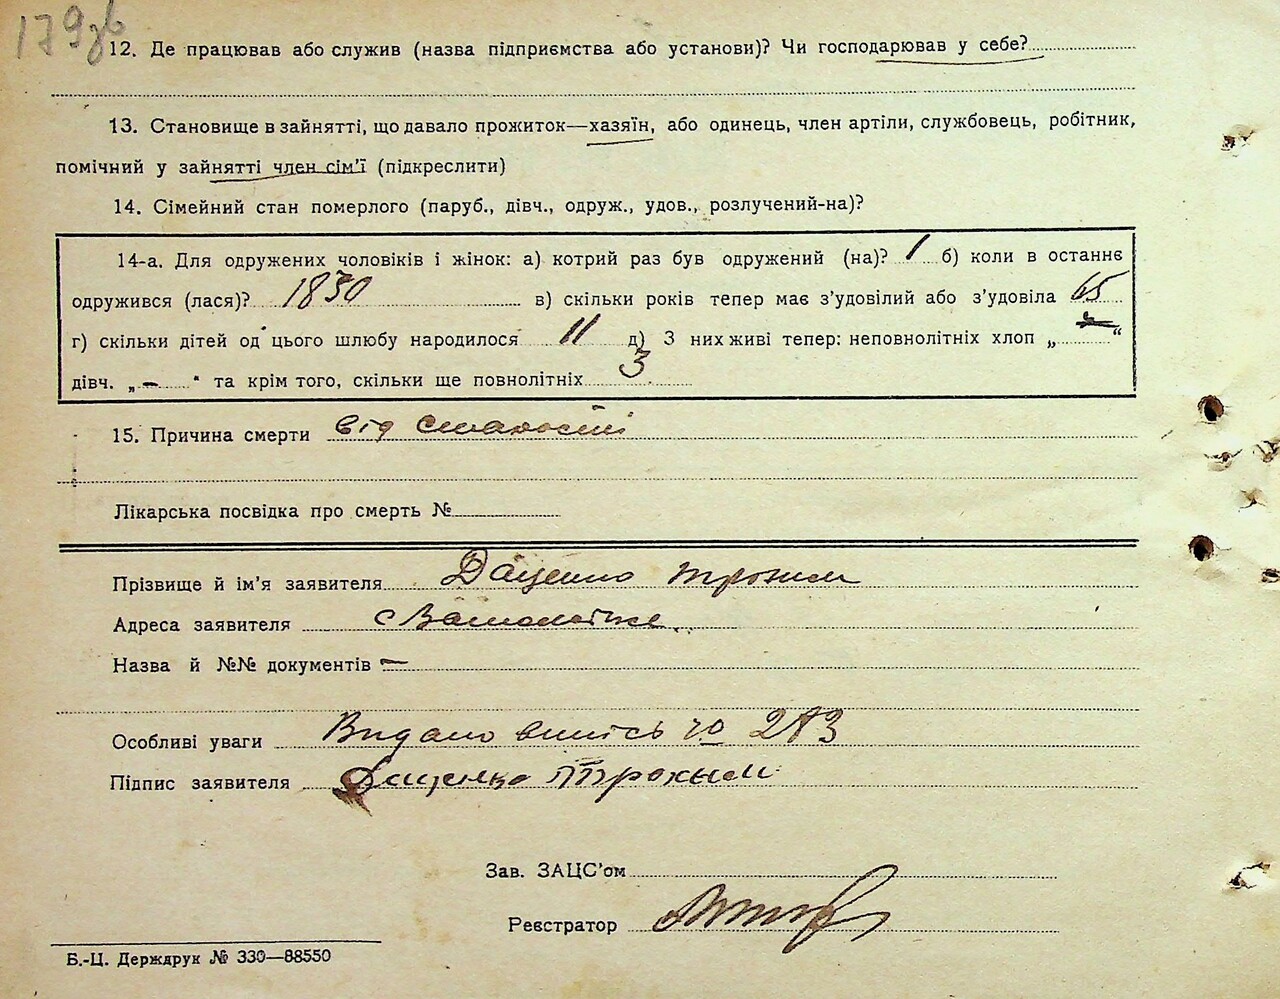 179зв
12. Де працював або служив (назва підприємства або установи)? Чи господарював у себе?
13. Становище в зайнятті, що давало прожиток—хазяїн, або одинець, член артілі, службовець, робітник,
помічний у зайнятті член сім'ї (підкреслити)
14. Сімейний стан померлого (паруб., дівч., одруж., удов., розлучений-на)?
14-а. Для одружених чоловіків і жінок: а) котрий раз був одружений (на)? 1 б) коли в останнє
одружився (лася)? 1830 в) скільки років тепер має з'удовілий або з'удовіла 65
г) скільки дітей од цього шлюбу народилося 11 д) З них живі тепер: неповнолітніх хлоп „ — “
дівч. „ — “ та крім того, скільки ще повнолітніх 3
15. Причина смерти від старости
Лікарська посвідка про смерть №
Прізвище й ім'я заявителя Даценко Трохим
Адреса заявителя с
Назва й №№ документів —
Особливі уваги Видано випись 283
Підпис заявителя Даценко Трохым
Зав. ЗАЦС'ом
Реєстратор
Б.-Ц. Держдрук № 330—88550